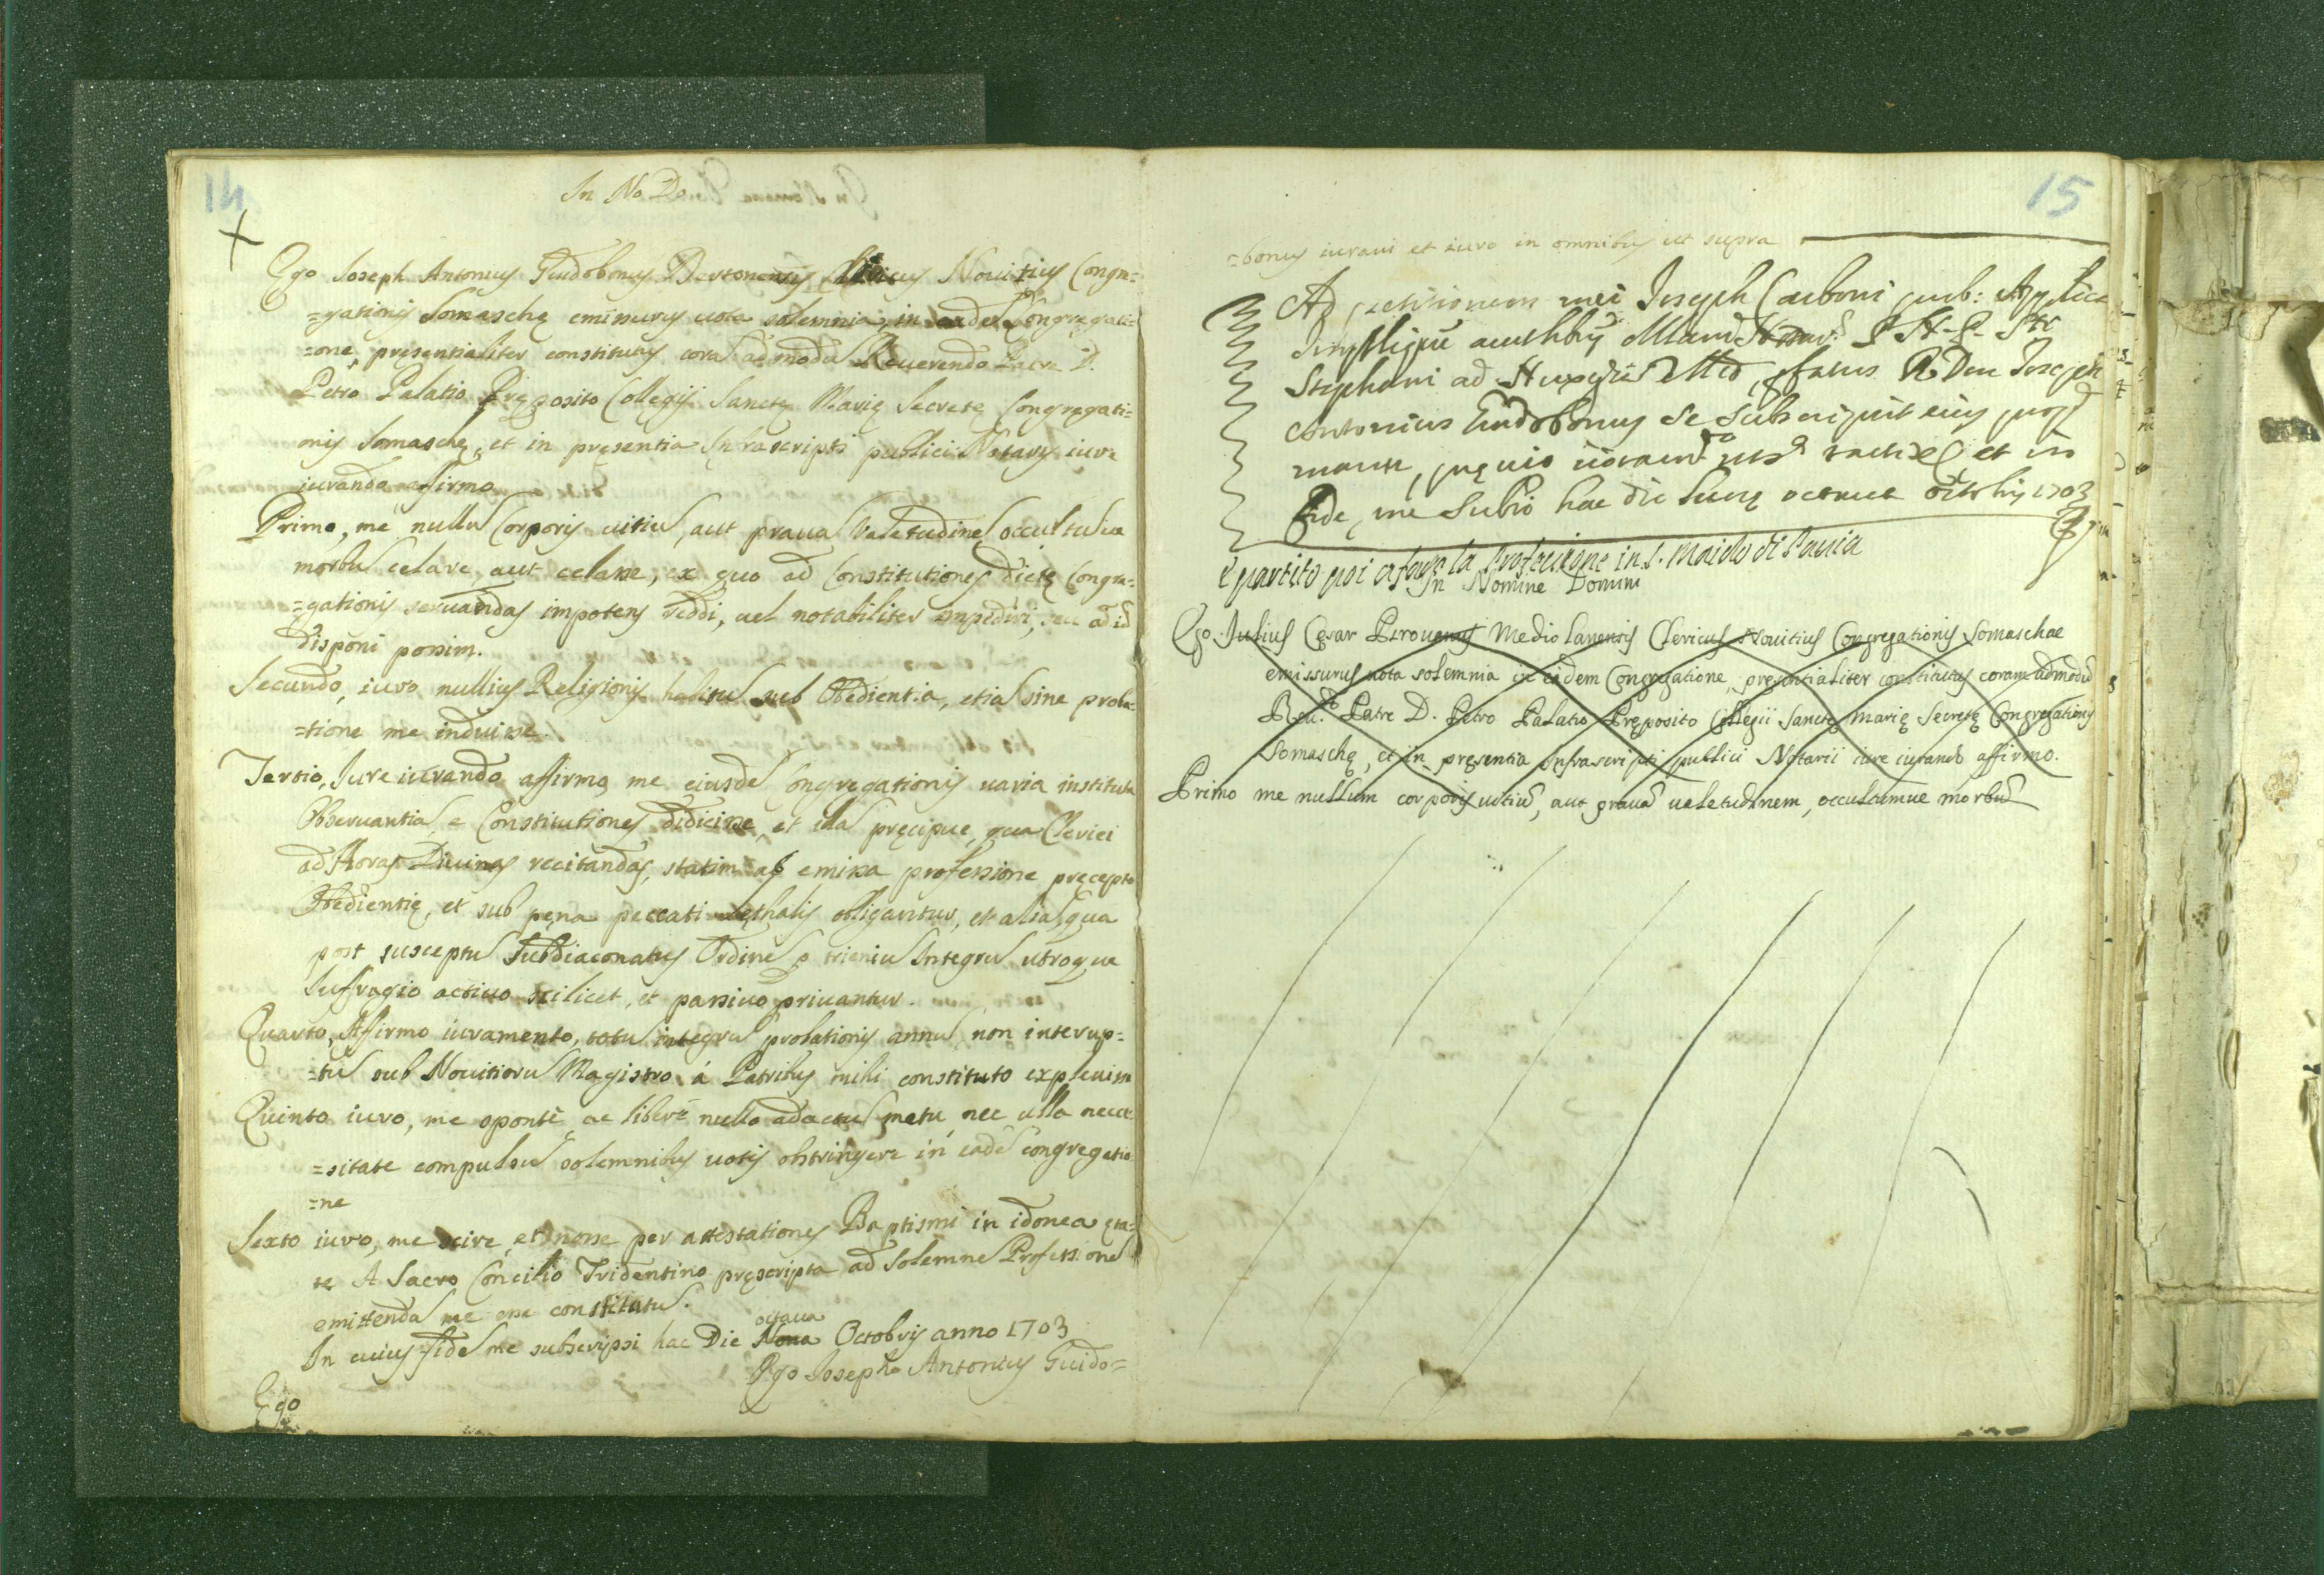 14
In No Do
Ego Joseph Antonius Guidobonus Dertonensis Clericus Nouitius Congre=
=gationis Somaschę emissurus uota solemnia in eadē Congregati=
=one, pręsentialiter constitutus corā admodū Reuerendo Patre D.
Petro Palatio Pręposito Collegij Sanctę Marię Secretę Congregati=
onis Somaschę, et in pręsentia Infrascripti publici Notarij iure
iurando affirmo
Primo, me nullū Corporis uitiū, aut prauā Valetudinē, occultūue
morbū celare, aut celasse, ex quo ad Constitutiones dictę Congre=
=gationis seruandas impotens reddi, uel notabiliter impediri, seu ad id
disponi possim.
Secundo, iuro nullius Religionis habitū sub Obedientia, etiā sine proba=
=tione me induisse.
Tertio, Jure iurando affirmo me eiusdē Congregationis uaria instituta
Obseruantiā, e Constitutiones didicisse, et illa pręcipue, qua Clerici
ad Horas Diuinas recitandas, statim ab emissa professione pręcepto
Obedientię, et sub pęna peccati lęthalis obligantur, et aliā, qua
post susceptū Subdiaconatus Ordinē p trieniū Integrū utroque
Sufragio actiuo scilicet, et passiuo priuantur.
Quarto, Affirmo iuramento, totū integrū probationis annū non interup=
=tū sub Nouitiorū Magistro á Patribus mihi constituto expleuisse
Quinto iuro, me spontè, ac liberè nullo adactū metu, nec ulla nece=
=sitate compulsū solemnibus uotis obstringere in eadē congregatio=
=ne
Sexto iuro, me scire, et nosse per attestationes Baptismi in idonea ęta=
te A Sacro Concilio Tridentino pręscripta ad Solemnē Professionē
emittendā me esse constitutū.
octaua
In cuius fidē me subscripsi hac Die Nona Octobris anno 1703
Ego Josepho Antonius Guido=
Ego
15
=bonus iuraui et iuro in omnibus ut supra
Ad petitionem mei Joseph Carboni pub:
Stephani ad Ffatus R Don Joseph
Antonius Guidobonus se subscripsit eius propa
manu, et in
Fide, me Subio hac die Lunę octaua octobris 1703
è partito poi a fare la Professione in S. Maiolo di Pauia
In Nomine Domini
Ego Julius Cęsar Mediolanensis Clericus Nouitius Congregationis Somaschae
emissurus uota solemnia in eadem Congregatione, pręsentialiter constitutus coram admodū
Reu.do Patre D. Petro Palatio Pręposito Collegii Sanctę Marię Secretę Congregationis
Somaschę, et in pręsentia Infrascripti publici Notarii iure iurando affirmo.
Primo me nullum corporis uitiū, aut prauā ualetudinem, occultumue morbū